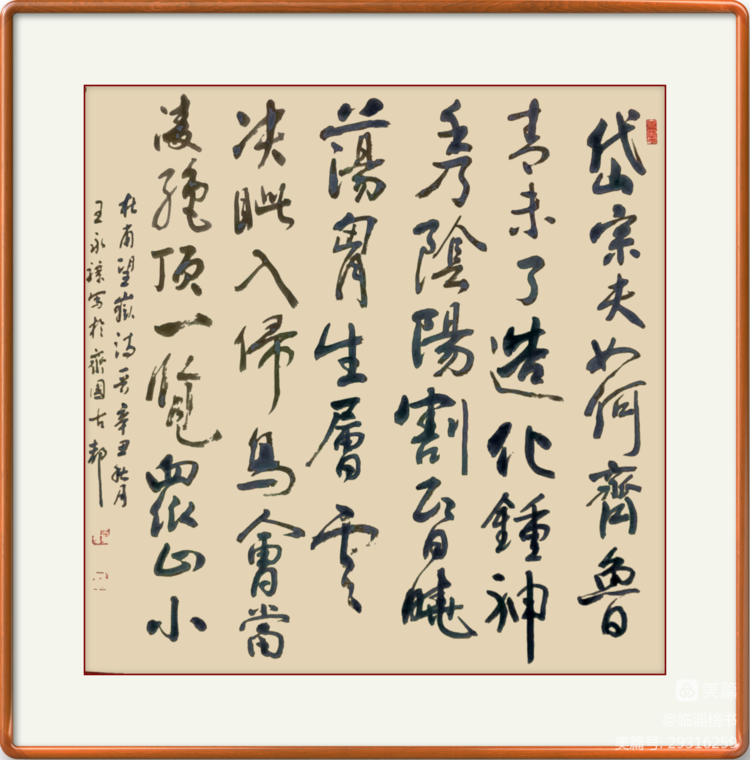 岱宗夫如何齊魯
青未了造化鍾神
秀陰陽割昏曉
蕩胷生層雲
决眦入帰鳥會當
凌絶頂一覽眾山小
杜甫望嶽詩辛丑秋月
王永写於齊國古都
美篇
美篇号:29316299